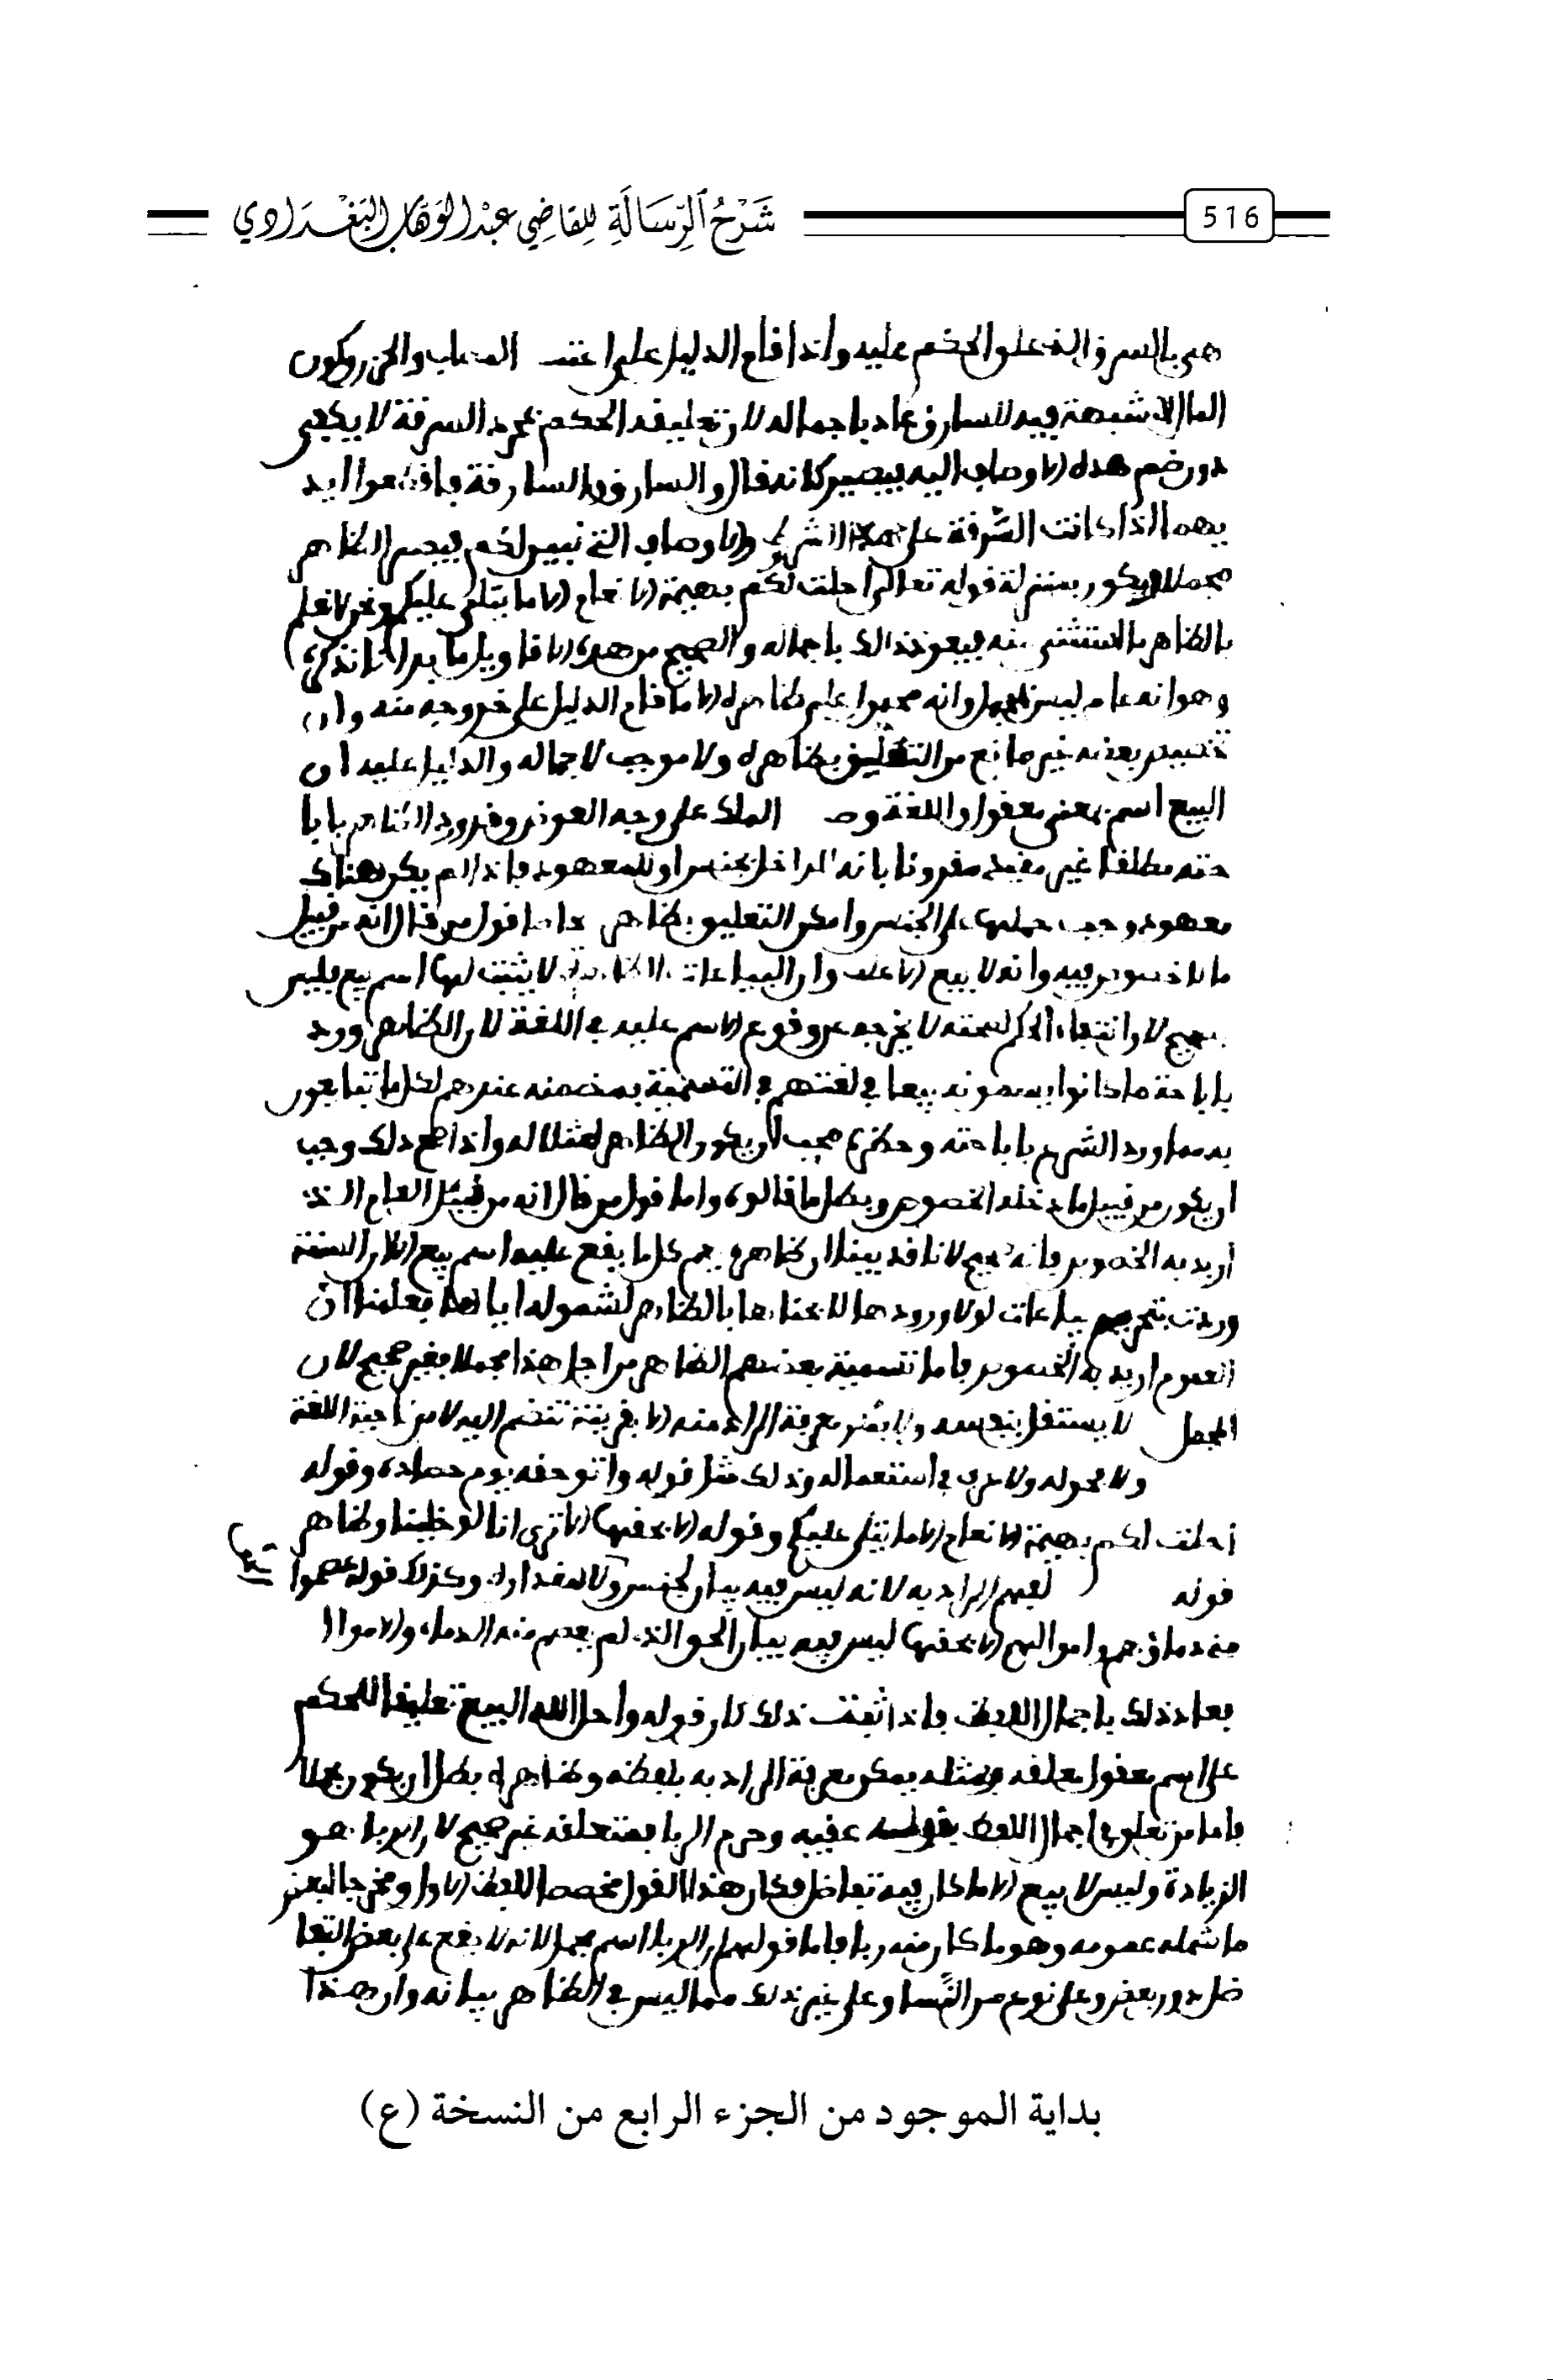 516
شَرْحُ الرِّسَالَةِ لِلقاضِي عَبْد الوَهَّاب البَغْدَادي
السر علق الحكم عليه واذا قام الدليل على والحرز وكون
المال لا شبهة فيه للسارق عاد باجماله لان تعليقه الحكم بمجرد السرقة لا يكفي
دون ضم هذه الاوصاف اليه فيصير كانه قال والسارق والسارقة فاقطعوا ايد
يهما اذا كانت السَّرقة على والاوصاف التي نبين لكم فيصير الظاهر
مجملا ويكون بمنزلة قوله تعالى احلت لكم بهيمة الانعام الا ما يتلى عليكم ونحن لا نعلم
بالظاهر ما المستثنى منه فيعود ذالك باجماله والصحيح من هذه الاقاويل ما بدانا بذكره
وهو انه عام ليس بمجمل وانه محمول على ظاهره الا ما قام الدليل على خروجه منه وان
تخصيص بعضه غير مانع من التعليق بظاهره ولا موجب لاجماله والدليل عليه ان
البيع اسم بمعنى معقول في اللغة وهو الملك على وجه العوض وقد ورد الظاهر بابا
حته مطلقا غير مقيد مقرونا بانه اما للجنس او للمعهود فاذا لم يكن هناك
معهود وجب حملها على الجنس وامكن التعليق بظاهره فاما قول من قال انه من قبيل
ما لا خصوص فيه وانه لا بيع الا حلال وان البياعات لا يثبت لها اسم بيع فليس
بصحيح لان انتفاء الحكم لصحته لا يخرجه عن وقوع الاسم عليه في اللغة لان الظاهر ورد
باباحة ما كانوا يسمونه بيعا في لغتهم في التسمية بمضمنه عندهم لكل ما تبايعون
به مما ورد الشرع باباحته وحظره فيجب ان يكون الظاهر متناولا له واذا صح ذلك وجب
ان يكون من قبيل ما دخله الخصوص وبطل ما قالوه واما قول من قال انه من قبيل العام الذي
أريد به الخصوص فانه صحيح لانا قد بينا ان ظاهره يعم كل ما يقع عليه اسم بيع الا ان السنة
وردت بتحريم بياعات لولا ورودها لابحناها بالظاهر لشموله اياها فعلمنا أن
العموم اريد به الخصوص فاما تسمية بعضهم الظاهر من اجل هذا مجملا فغير صحيح لان
المجمل لا يستقل بنفسه ولا يمكن معرفة المراد منه الا بقرينة تنضم اليه لا من ناحية اللغة
ولا فحواه ولا عرف في استعماله وذلك مثل قوله واتوا حقه يوم حصاده وقوله
أحلت لكم بهيمة الانعام الا ما يتلى عليكم وقوله الا بحقها الا ترى انا لو خلينا وظاهر
قوله لم يفهم المراد به لانه ليس فيه بيان لجنس ولا لمقدار وكذلك قوله عصموا
مني دماءهم واموالهم الا بحقها ليس فيه بيان الحق الذي لم يعصم منه الدماء والاموال
فعاد ذلك باجمال اللفظ فاذا ثبت ذلك كان قوله واحل الله البيع تعليقا للحكم
على اسم معقول معلقه ومثله يمكن معرفة المراد به بلفظه وظاهره بطل ان يكون مجملا
فاما من تعلق في اجمال اللفظ بقوله عقيبه وحرم الربا فمتعلقه غير صحيح لان الربا هو
الزيادة وليس كل بيع الا ما كان فيه تفاضل فكان هذا القول مخصصا للفظ الاول ومخرجا لبعض
ما شمله عمومه وهو ما كان منه ربا فاما قولهم ان الربا اسم مجمل لانه لا يقع على بعض التفا
ضل دون بعض وعلى نوع من النَّسا وعلى غير ذلك مما ليس في الظاهر بيانه وان هذا
بداية الموجود من الجزء الرابع من النسخة (ع)